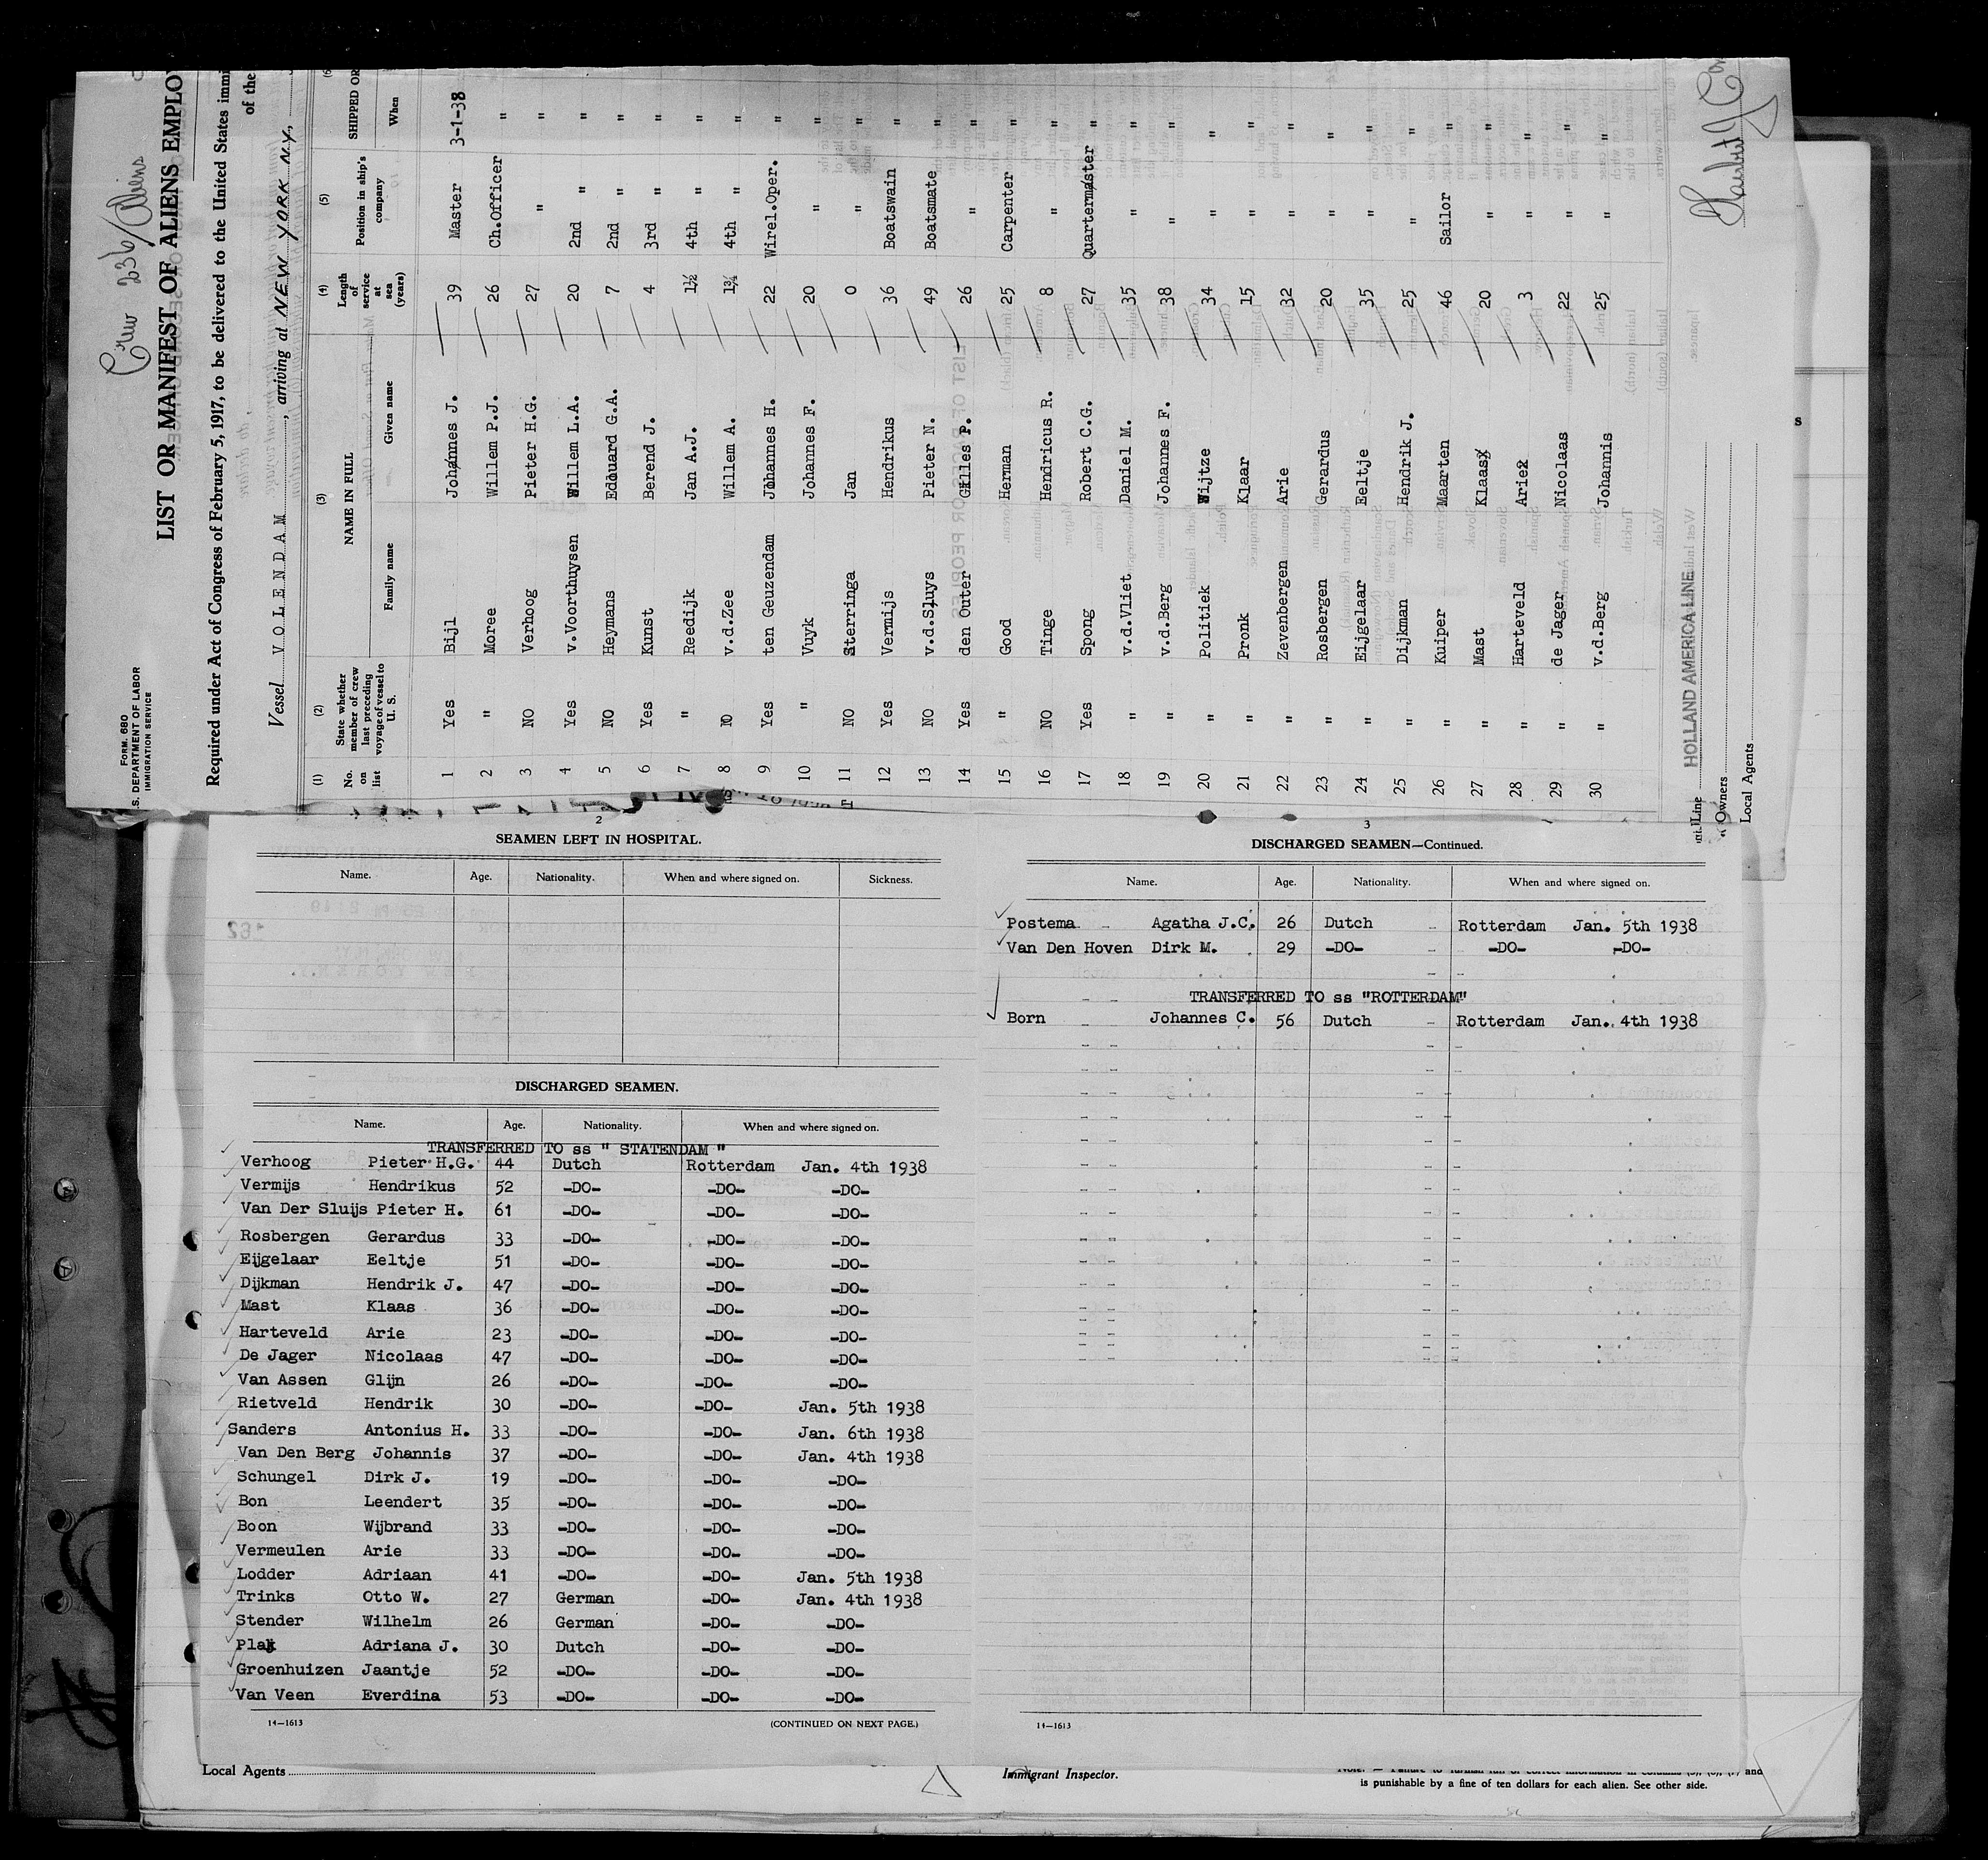 Crew 236/Aliens
FORM 680
.S. DEPARTMENT OF LABOR
IMMIGRATION SERVICE
LIST OR MANIFEST OF ALIENS EMPLO
Required under Act of Congress of February 5, 1917, to be delivered to the United States immi
of the
Vessel VOLENDAM, arriving at NEW YORK N.Y.,
(1) No. on list (2) State whether member of crew last preceding voyage of vessel to U. S. (3) NAME IN FULL Family name Given name (4) Length of service at sea (years) (5) Position in ship's company (6 SHIPPED OR When
1 Yes Bijl Johannes J. 39 Master 3-1-38
2 " Moree Willem P.J. 26 Ch.Officer "
3 NO Verhoog Pieter H.G. 27 " "
4 Yes v.Voorthuysen Willem L.A. 20 2nd " "
5 NO Heymans Edouard G.A. 7 2nd " "
6 Yes Kunst Berend J. 4 3rd " "
7 " Reedijk Jan A.J. 1½ 4th " "
8 NO v.d.Zee Willem A. 1¾ 4th " "
9 Yes ten Geuzendam Johannes H. 22 Wirel.Oper. "
10 " Vuyk Johannes F. 20 " "
11 NO Sterringa Jan 0 " "
12 Yes Vermijs Hendrikus 36 Boatswain "
13 NO v.d.Sluys Pieter N. 49 Boatsmate "
14 Yes den Outer Gilles P. 26 " "
15 " Good Herman 25 Carpenter "
16 NO Tinge Hendricus R. 8 " "
17 Yes Spong Robert C.G. 27 Quartermaster "
18 " v.d.Vliet Daniel M. 35 " "
19 " v.d.Berg Johannes F. 38 " "
20 " Politiek Wijtze 34 " "
21 " Pronk Klaar 15 " "
22 " Zevenbergen Arie 32 " "
23 " Rosbergen Gerardus 20 " "
24 " Eijgelaar Eeltje 35 " "
25 " Dijkman Hendrik J. 25 " "
26 " Kuiper Maarten 46 Sailor "
27 " Mast Klaas 20 " "
28 " Harteveld Arie 3 " "
29 " de Jager Nicolaas 22 " "
30 " v.d.Berg Johannis 25 " "
Line HOLLAND AMERICA LINE
Owners
Local Agents
2
SEAMEN LEFT IN HOSPITAL.
Name. Age. Nationality. When and where signed on. Sickness.
DISCHARGED SEAMEN.
Name. Age. Nationality. When and where signed on.
TRANSFERRED TO ss " STATENDAM "
Verhoog Pieter H.G. 44 Dutch Rotterdam Jan. 4th 1938
Vermijs Hendrikus 52 -DO- -DO- -DO-
Van Der Sluijs Pieter H. 61 -DO- -DO- -DO-
Rosbergen Gerardus 33 -DO- -DO- -DO-
Eijgelaar Eeltje 51 -DO- -DO- -DO-
Dijkman Hendrik J. 47 -DO- -DO- -DO-
Mast Klaas 36 -DO- -DO- -DO-
Harteveld Arie 23 -DO- -DO- -DO-
De Jager Nicolaas 47 -DO- -DO- -DO-
Van Assen Glijn 26 -DO- -DO- -DO-
Rietveld Hendrik 30 -DO- -DO- Jan. 5th 1938
Sanders Antonius H. 33 -DO- -DO- Jan. 6th 1938
Van Den Berg Johannis 37 -DO- -DO- Jan. 4th 1938
Schungel Dirk J. 19 -DO- -DO- -DO-
Bon Leendert 35 -DO- -DO- -DO-
Boon Wijbrand 33 -DO- -DO- -DO-
Vermeulen Arie 33 -DO- -DO- -DO-
Lodder Adriaan 41 -DO- -DO- Jan. 5th 1938
Trinks Otto W. 27 German -DO- Jan. 4th 1938
Stender Wilhelm 26 German -DO- -DO-
Plak Adriana J. 30 Dutch -DO- -DO-
Groenhuizen Jaantje 52 -DO- -DO- -DO-
Van Veen Everdina 53 -DO- -DO- -DO-
14—1613 (CONTINUED ON NEXT PAGE.)
3
DISCHARGED SEAMEN—Continued.
Name. Age. Nationality. When and where signed on.
Postema Agatha J.C. 26 Dutch Rotterdam Jan. 5th 1938
Van Den Hoven Dirk M. 29 -DO- -DO- -DO-
TRANSFERRED TO ss "ROTTERDAM"
Born Johannes C. 56 Dutch Rotterdam Jan. 4th 1938
14—1613
Local Agents
Immigrant Inspector.
is punishable by a fine of ten dollars for each alien. See other side.